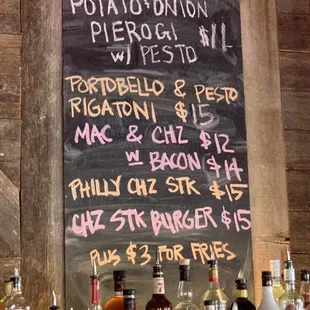 POTATO & ONION
PIEROGI $11
W/ PESTO
PORTOBELLO & PESTO
RIGATONI $15
MAC & CHZ $12
W BACON $14
PHILLY CHZ STK $15
CHZ STK BURGER $15
PLUS $3 FOR FRIES